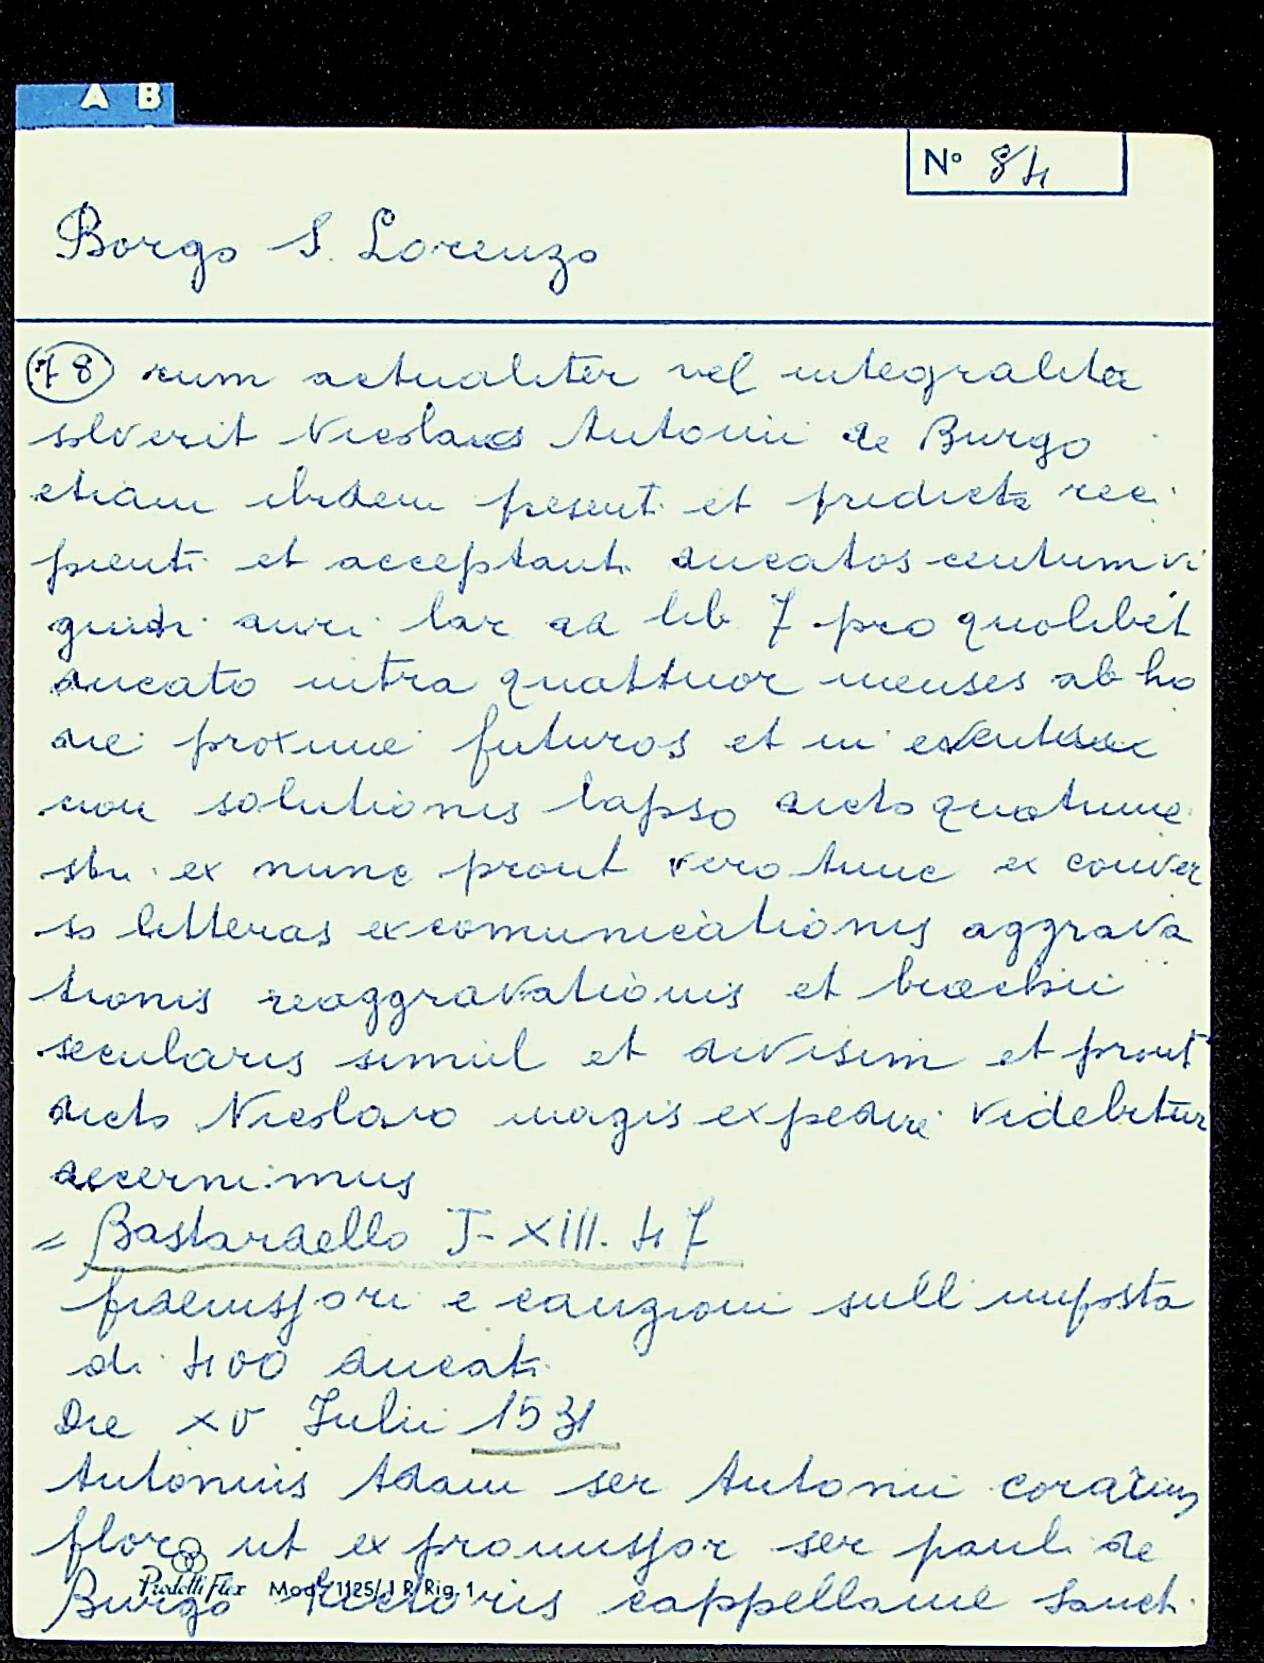 A B
N° 84
Borgo S. Lorenzo
78 rum actualiter vel integraliter
solverit Nicolaus Antonii de Burgo
etiam ibidem present. et predicta reci
pienti et acceptanti ducatos centum vi
ginti auri lar ad lib 7 pro quolibet
ducato intra quattuor menses ab ho
die proxime futuros et in
non solutionis lapso dicto quatrime
stri ex nunc prout vero tunc ex conver
so litteras excomunicationis aggrava
tionis reaggravationis et brachii
secularis simul et divisim et prout
dicto Nicolaro magis expedire videbitur
decernimus
= Bastardello J-XIII. 47
fidemissori e cauzioni sull imposta
di 400 ducati
Die XV Julii 1531
Antonius Adam ser Antonii
flor ut ex promissor ser pauli de
Burgo rectoris cappellanie Sanct.
Mod. 1125/1 R/Rig. 1